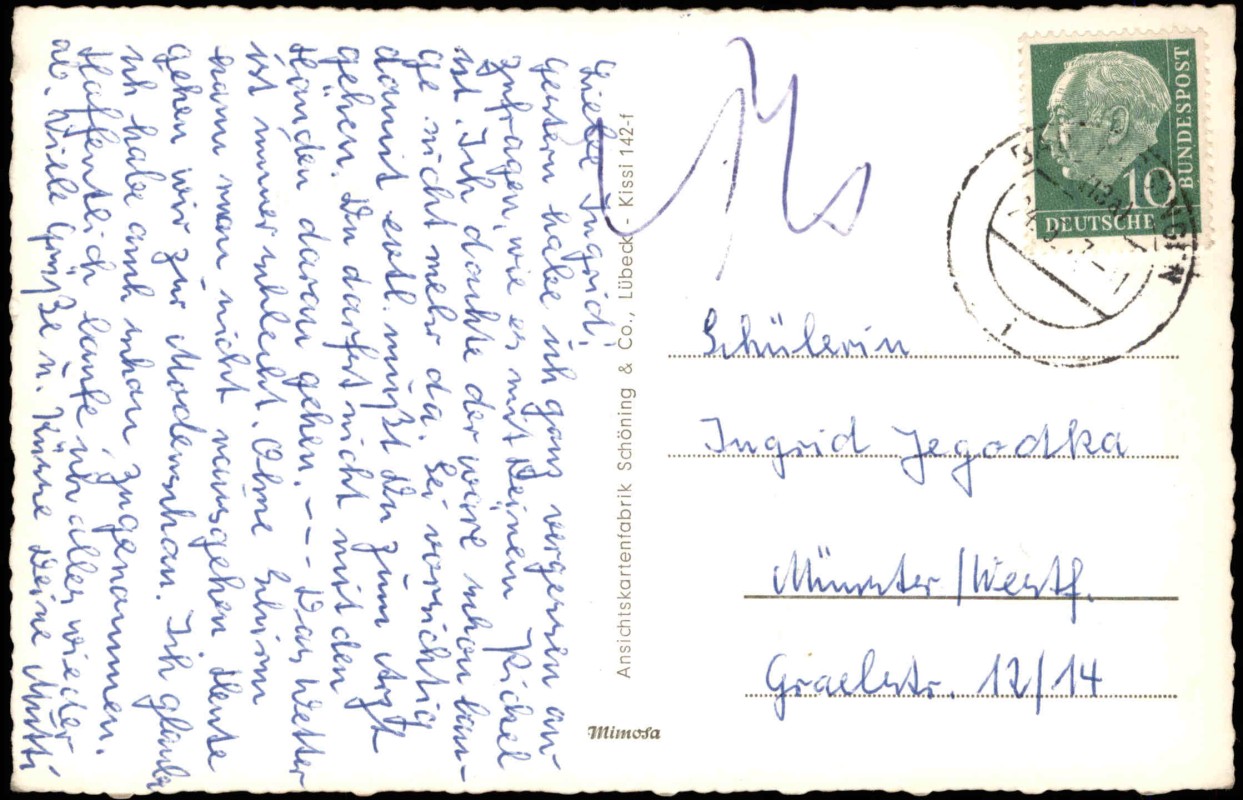 Liebe Ingrid!
Gestern habe ich ganz vergessen an-
zufragen, wie es mit Deinem Pickel
ist. Ich dachte der wäre schon lan-
ge nicht mehr da. Sei vorsichtig
damit evtl. mußt Du zum Arzt
gehen. Du darfst nicht mit den
Händen daran gehen. – – – Das Wetter
ist immer schlecht. Ohne Schirm
kann man nicht rausgehen. Heute
gehen wir zur Modenschau. Ich glaube
ich habe auch schon zugenommen.
Hoffentlich laufe ich alles wieder
ab. Viele Grüße u. Küsse Deine Mutti
Ansichtskartenfabrik Schöning & Co., Lübeck - Kissi 142-f
Mimosa
BUNDESPOST
10
DEUTSCHE
Schülerin
Ingrid Jegodtka
Münster/Westf.
Graelstr. 12/14